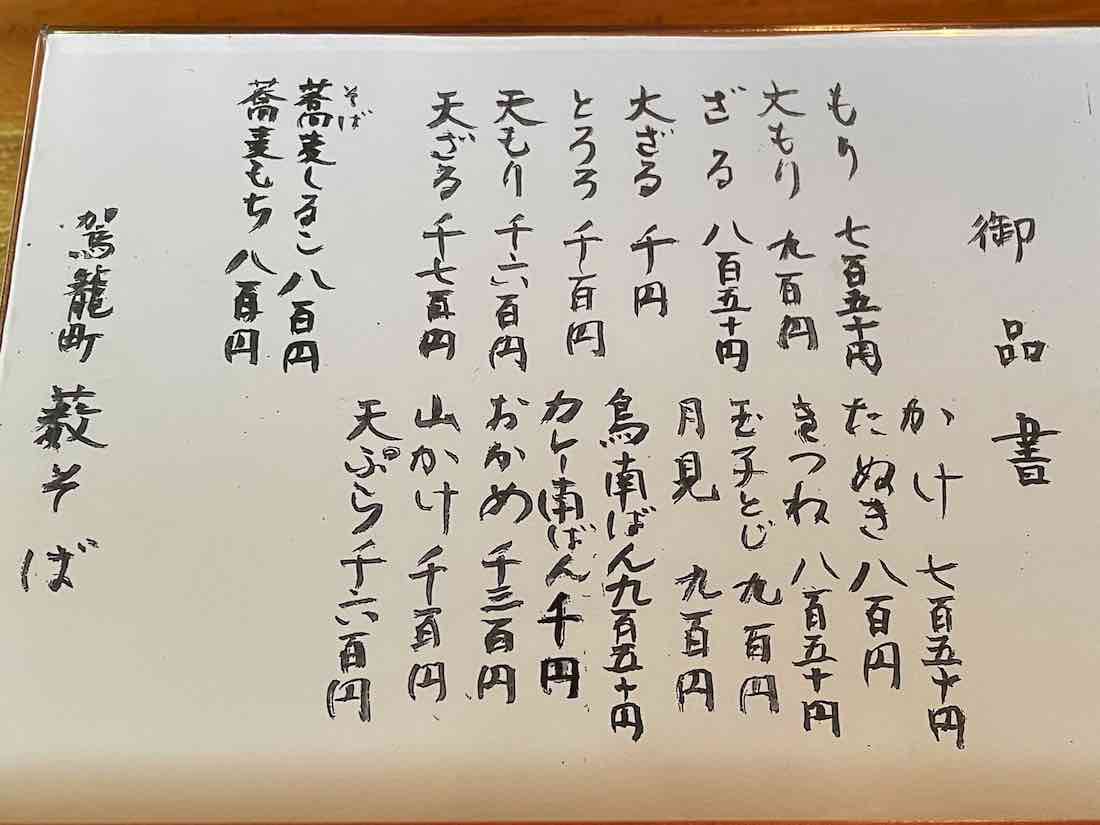 御品書
もり 七百五十円
大もり 九百円
ざる 八百五十円
大ざる 千円
とろろ 千百円
天もり 千六百円
天ざる 千七百円
蕎麦しるこ 八百円
そば
蕎麦もち 八百円
かけ 七百五十円
たぬき 八百円
きつね 八百五十円
玉子とじ 九百円
月見 九百円
鳥南ばん 九百五十円
カレー南ばん 千円
おかめ 千三百円
山かけ 千百円
天ぷら 千六百円
駕籠町 藪そば